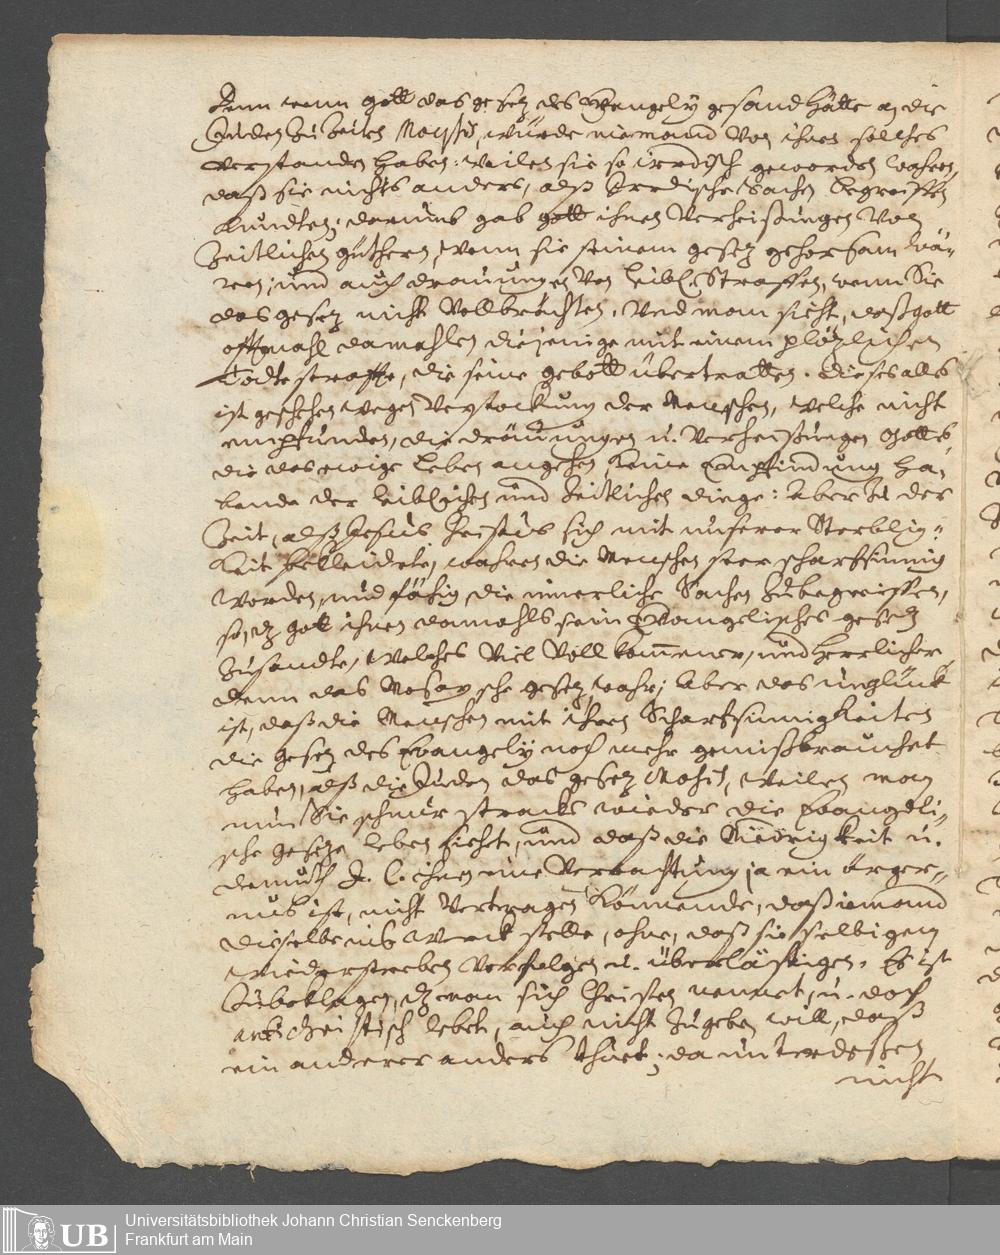 Denn wenn gott das gesetz des Evangely gesand hätte an die
Juden zu Zeiten Moysis, würde niemand von ihnen solches
verstanden haben: weilen sie so irrdisch geworden wahren,
daß sie nichts anders, alß Irrdische Sachen begreiffen
kundten; darumb gab gott ihnen Verheißungen von
Zeitlichen güthern, wenn sie seinem gesetz gehorsam wä-
ren; und auch drauungen von leibl. Straffen, wenn Sie
das gesetz nicht vollbrächten. Und man sieht, daß gott
offtmahl damahlen diejenige mit einem plötzlichen
Todte straffte, die seine gebott übertratten. dieses alls
ist geschehen wegen Verstockung der Menschen, welche nicht
empfunden, die dräuungen u. Verheißungen Gottes
die das ewige leben angehen keine Empfindung ha-
bende der leiblichen und Zeitlichen dinge: Aber zu der
Zeit, alß Jesus Christus sich mit unserer Sterblig-
keit bekleidete, wahren die Menschen seer scharfsinnig
worden, und fähig die innerliche Sachen zubegreiffen,
so, dz gott ihnen damahls sein Evangelisches gesetz
zusandte, welches viel vollkommener, und herrlicher
denn das Mosaysche gesetz wahr; Aber das unglück
ist, daß die Menschen mit ihren Scharfsinnigkeiten
die gesetz des Evangely noch mehr gemißbrauchet
haben, alß die Juden das gesetz Mosis, weilen man
nun Sie schnur stracks wieder die Evangeli-
sche gesetze leben siehet, und daß die Niedrigkeit u.
demuth J. C. ihnen eine Verachtung ja ein ärger-
nus ist, nicht vertragen könnende, daß iemand
dieselbe ins Werck stelle, ohne, daß sie selbigem
wiederstreben verfolgen u. überlästigen. Es ist
zubeklagen, dz man sich Christen nennet, u. doch
antichristisch lebet, auch nicht zugeben will, daß
ein anderer anders thuet; da unterdeßen
nicht
UB
Universitätsbibliothek Johann Christian Senckenberg
Frankfurt am Main